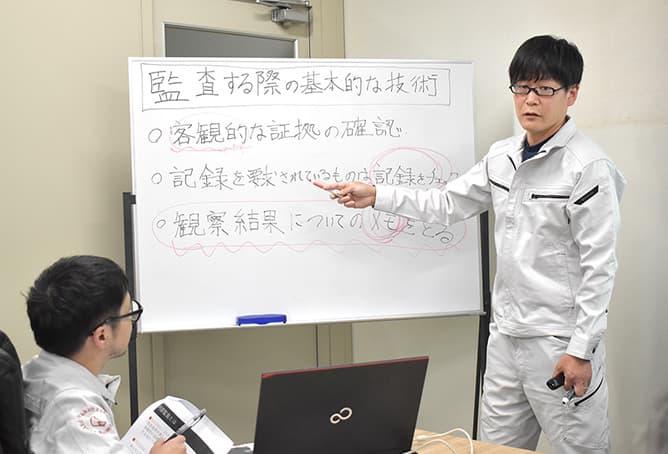 監査する際の基本的な技術
○客観的な証拠の確認
○記録を要求されているものは記録をチェック
○観察結果についてのメモをとる